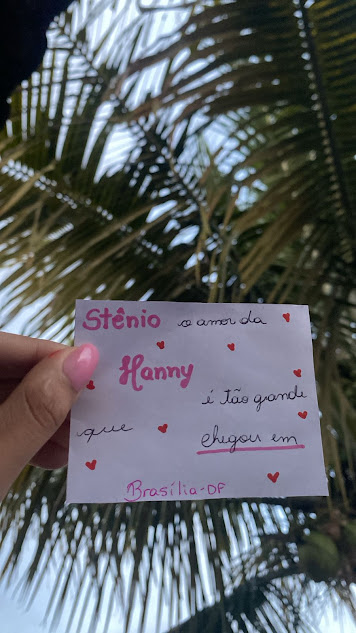 Stênio o amor da
Hanny
é tão grande
que
chegou em
Brasília-DF